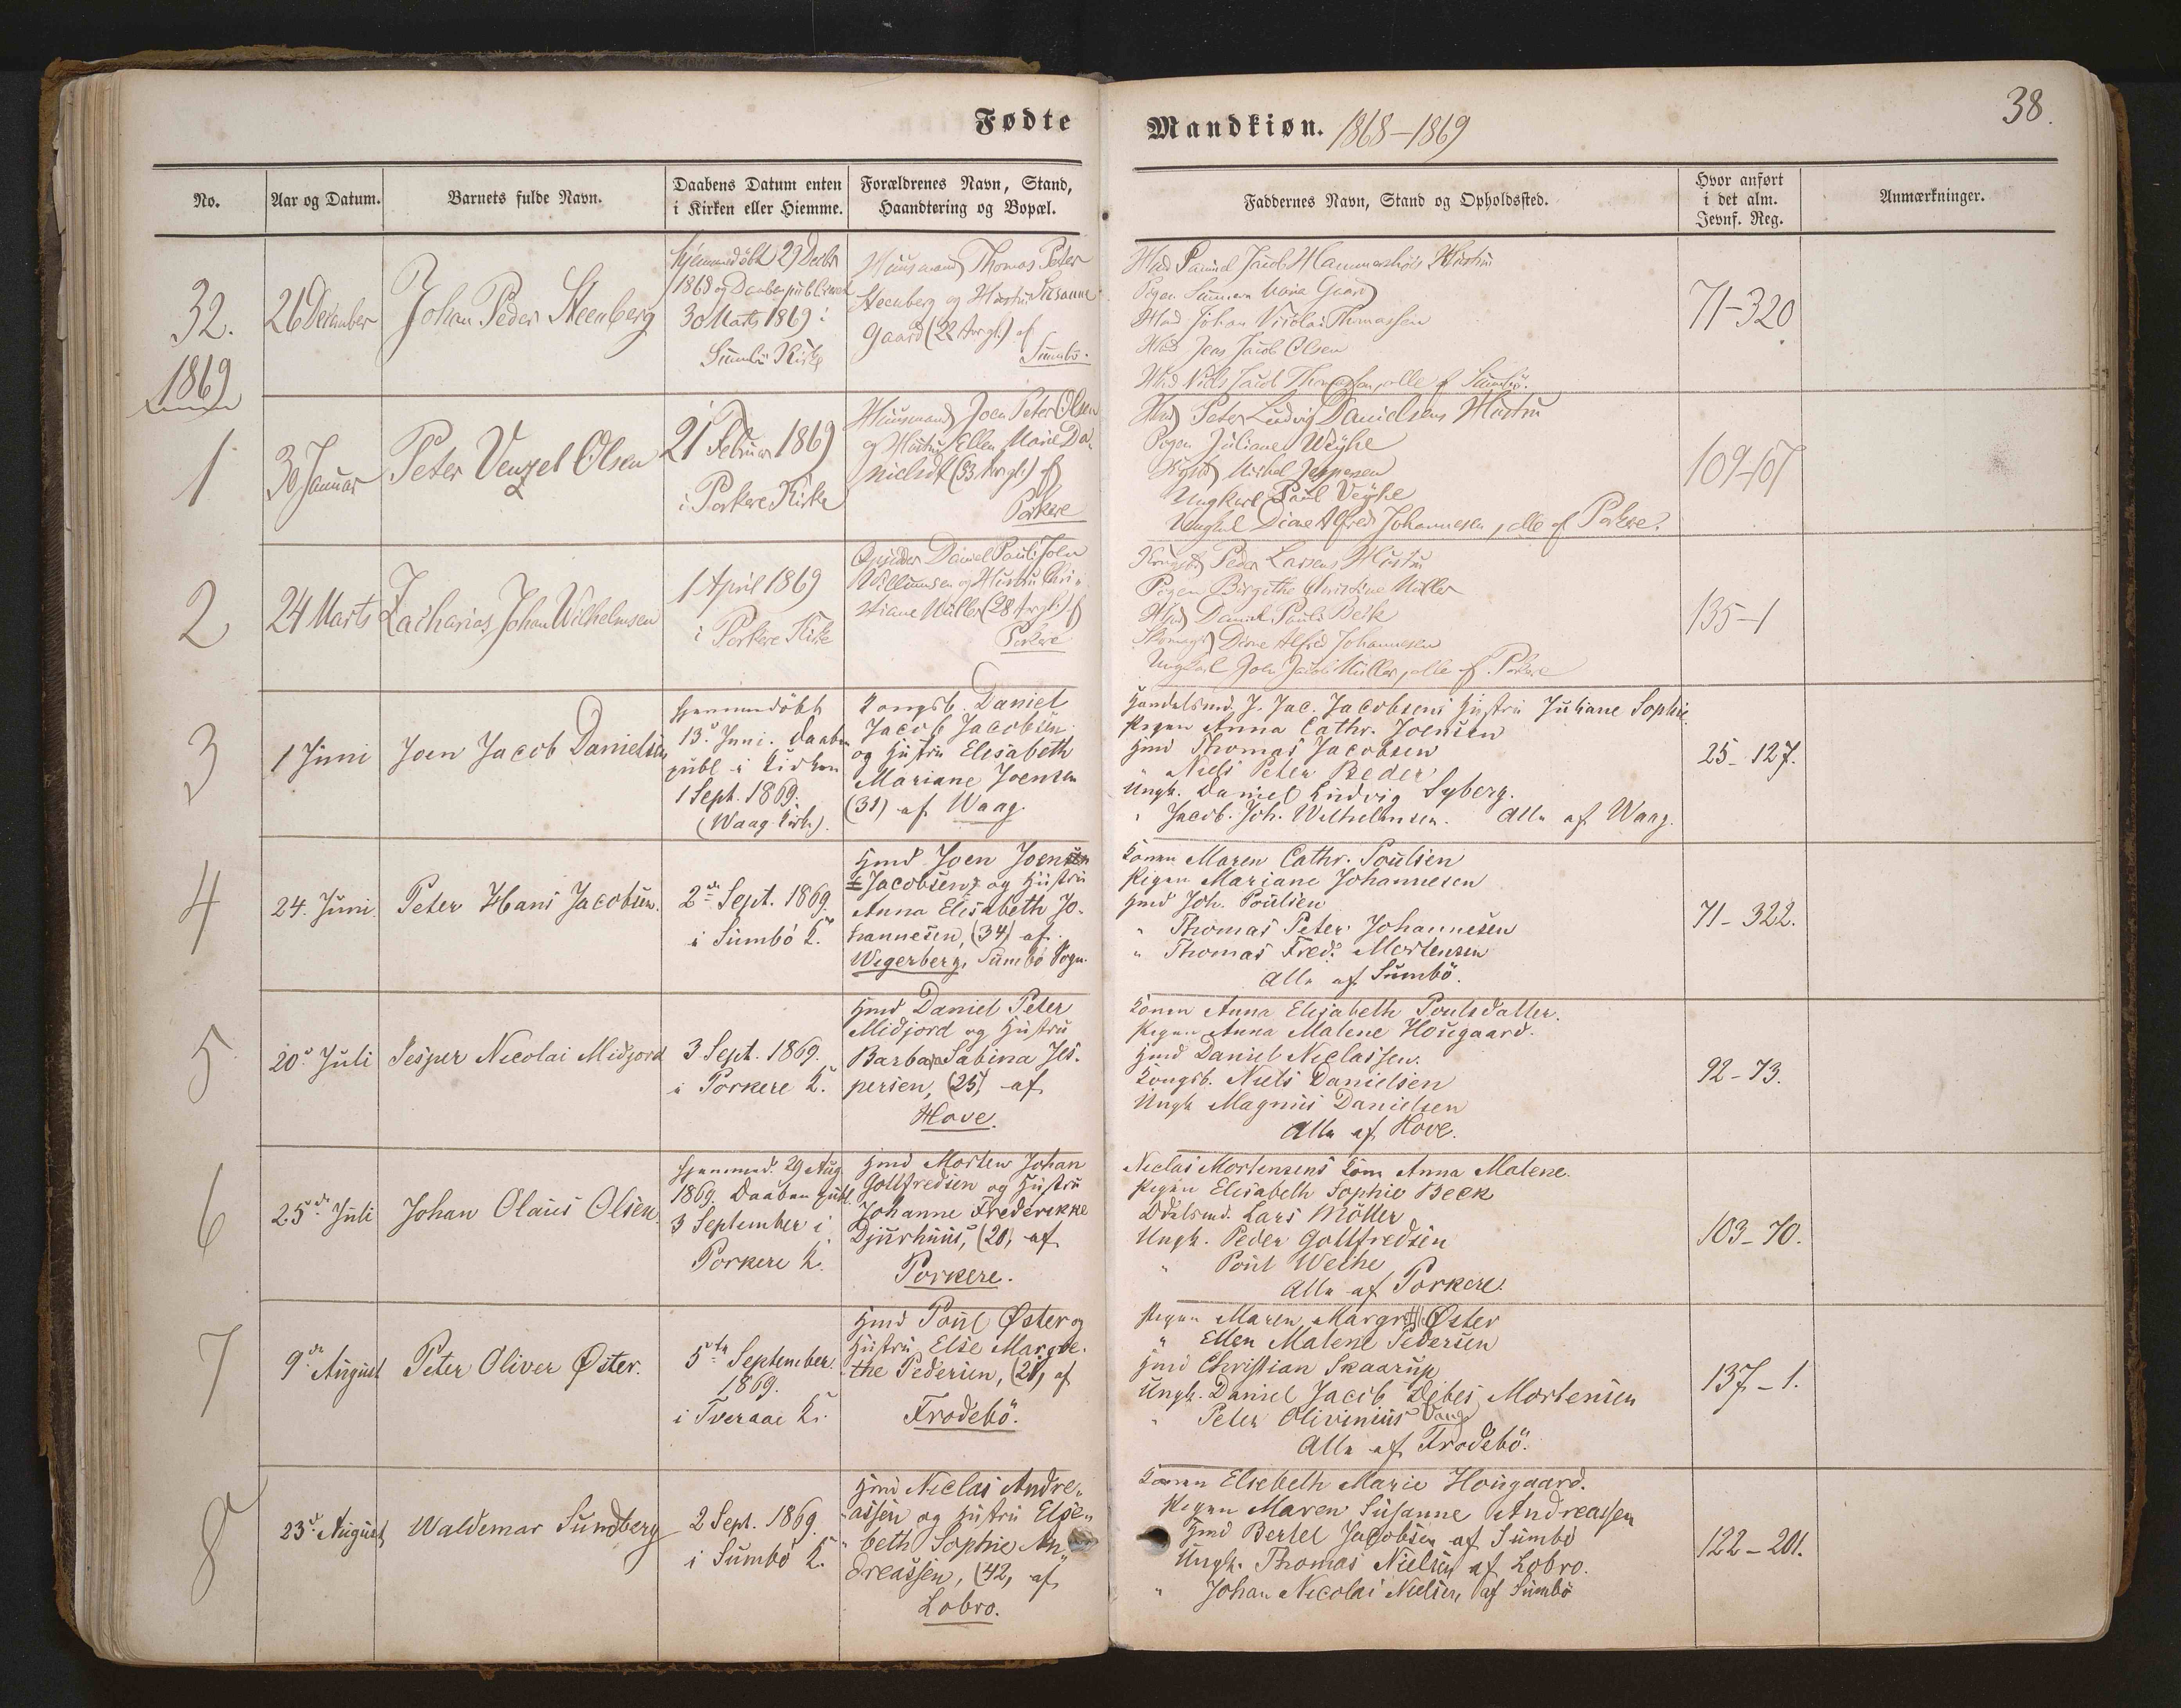 Fødte
Mandkiøn. 1868-1869
38.
No.
Aar og Datum.
Barnets fulde Navn.
Daabens Datum enten
i Kirken eller Hiemme.
Forældrenes Navn, Stand,
Haandtering og Bopæl.
Faddernes Navn, Stand og Opholdssted.
Hvor anført
i det alm.
Jevnf. Reg.
Anmærkninger.
32.
26 December
Johan Peder Steenberg
Hjemmedøbt 27 Decbr
1868 og Daaben publiceret
30 Marts 1869 i
Sumbø Kirke
Huusmand Thomas Peter
Steenberg og Hustru Susanne
Gaard (22 Aar gl.) af
Sumbø.
Hmd Poul Jacob Hammershøis Hustru
Pigen Maria Gaard
Hmd Johan Nicolai Thomassen
Hmd Joen Jacob Olsen
Hmd Niels Jacob Thomassen, alle af Sumbø.
71-320
1869
1
30 Januar
Peter Venzel Olsen
21 Februar 1869
i Porkere Kirke
Huusmand Joen Peter Olsen
og Hustru Ellen Marie Da-
nielsdt (33 Aar gl.) af
Porkere
Hmd Peter Ludvig Danielsens Hustru
Pigen Juliane Weyhe
Mikkel Jespersen
Ungkarl Poul Veyhe
Ungkarl Dione Alfred Johannesen, alle af Porkere.
109-107
2
24 Marts
Zacharias Johan Wilhelmsen
1 April 1869
i Porkere Kirke
Opsidder Daniel Pauli Joen
Willumsen og Hustru Chri-
stiane Müller (28 Aar gl.) af
Porkere
Peder Larsens Hustru
Pigen Birgithe Christine Müller
Hmd Daniel Pauli Beck
Dione Alfred Johannesen
Ungkarl Joen Jacob Müller, alle af Porkere
135-1
3
1 Juni
Joen Jacob Danielsen
Hjemmedøbt
13d Juni. Daaben
publ. i Kirken
1 Sept. 1869.
(Waag Kirke).
Kongsb. Daniel
Jacob Jacobsen
og Hustru Elisabeth
Mariane Joensen
(31) af Waag.
Handelsmd. J. Jac. Jacobsens Hustru Juliane Sophie
Pigen Anna Cathr. Joensen
Hmd Thomas Jacobsen
" Niels Peter Beder
Ungk. Daniel Ludvig Lyberg.
" Jacob. Joh. Wilhelmsen. Alle af Waag.
25-127.
4
24. Juni
Peter Hans Jacobsen.
2de Sept. 1869.
i Sumbö K.
Hmd Joen Joensen
Jacobsen og Hustru
Anna Elisabeth Jo-
hannesen, (34) af
Wegerberg, Sumbö Sogn.
Konen Maren Cathr. Poulsen
Pigen Mariane Johannesen
Hmd Joh. Poulsen
" Thomas Peter Johannesen
" Thomas Fred. Mortensen
Alle af Sumbö.
71-322.
5
20d Juli
Jesper Nicolai Midjord
3 Sept. 1869.
i Porkere K.
Hmd Daniel Peter
Midjord og Hustru
Barbara Sabina Jes-
persen, (25), af
Hove.
Konen Anna Elisabeth Poulsdatter.
Pigen Anna Malene Hougaard.
Hmd Daniel Niclassen.
Kongsb. Niels Danielsen
Ungk Magnus Danielsen
Alle af Hove.
92-73.
6
25de Juli
Johan Olaus Olsen.
Hjemmed. 29 Aug.
1869. Daaben publ.
3 September i
Porkere K.
Hmd Morten Johan
Gottfredsen og Hustru
Johanne Frederikke
Djurhuus, (28), af
Porkere.
Niclas Mortensens Kone Anna Malene.
Pigen Elisabeth Sophie Beck
Odelsmd. Lars Möller
Ungk. Peder Gottfredsen
" Poul Weihe
Alle af Porkere.
103-70.
7
9de August
Peter Oliver Øster.
5te September
1869.
i Tveraae K.
Hmd Poul Øster og
Hustru Else Margre-
the Pedersen, (21), af
Frodebö.
Pigen Maren Margrethe Øster
" Ellen Malene Pedersen
Hmd Christian Skaarup
Ungk. Daniel Jacob Debes Mortensen
" Peter Olivinius Vang
Alle af Frodebö.
137-1.
8
23d August
Waldemar Sundberg
2 Sept. 1869.
i Sumbö K.
Hmd Niclas Andre-
assen og Hustru Else-
beth Sophie An-
dreassen, (42), af
Lobro.
Konen Elsebeth Marie Hougaard.
Pigen Maren Susanne Andreassen
Hmd Bertel Jacobsen af Sumbö
Ungk. Thomas Nielsen af Lobro.
" Johan Nicolai Nielsen, af Sumbö
122-201.